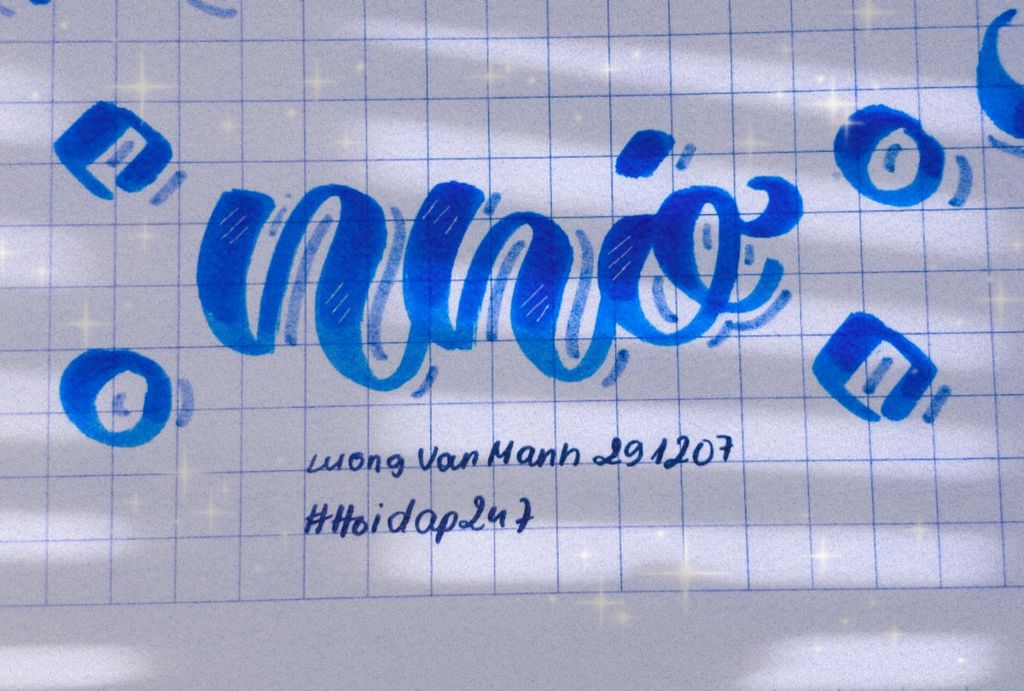 Luong Van Manh 291207
#Hoidap247